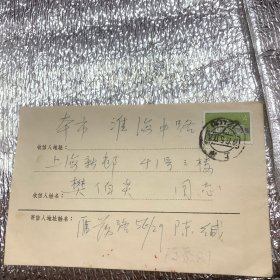 本市 淮海中路
收信人地址：
上海新邨 41号三楼
收信人姓名：
樊伯炎 同志
寄信人地址姓名：
雁荡路56/29 陈